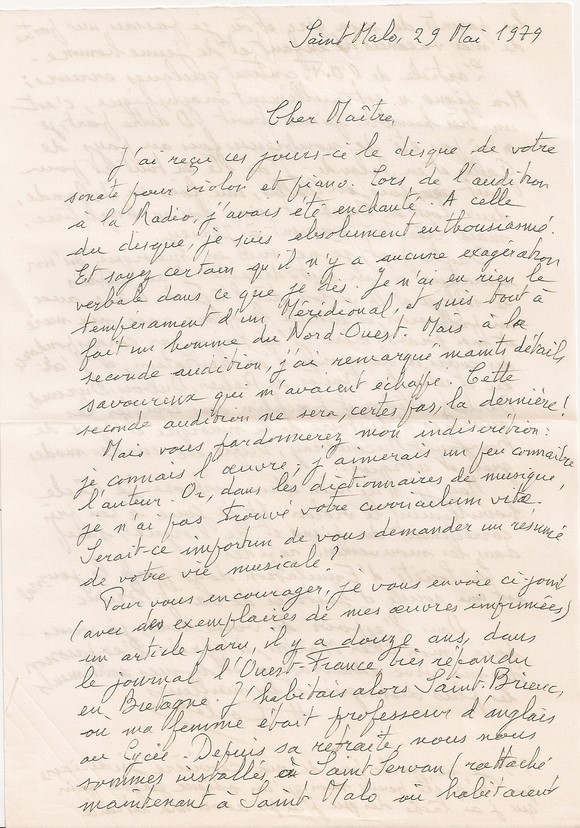 Saint Malo, 29 Mai 1979
Cher Maître,
J'ai reçu ces jours-ci le disque de votre
sonate pour violon et piano. Lors de l'audition
à la Radio, j'avais été enchanté. A celle
du disque, je suis absolument enthousiasmé.
Et soyez certain qu'il n'y a aucune exagération
verbale dans ce que je dis. Je n'ai en rien le
tempérament d'un Méridional, et suis tout à
fait un homme du Nord-Ouest. Mais à la
seconde audition, j'ai remarqué maints détails
savoureux qui m'avaient échappé. Cette
seconde audition ne sera, certes pas, la dernière!
Mais vous pardonnerez mon indiscrétion:
je connais l'œuvre, j'aimerais un peu connaître
l'auteur. Or, dans les dictionnaires de musique,
je n'ai pas trouvé votre curriculum vitæ.
Serait-ce importun de vous demander un résumé
de votre vie musicale?
Pour vous encourager, je vous envoie ci joint
(avec des exemplaires de mes œuvres imprimées)
un article paru, il y a douze ans, dans
le journal l'Ouest-France très répandu
en Bretagne. J'habitais alors Saint-Brieuc,
où ma femme était professeur d'anglais
au Lycée. Depuis sa retraite, nous nous
sommes installés à Saint Servan (rattaché
maintenant à Saint Malo où habitaient